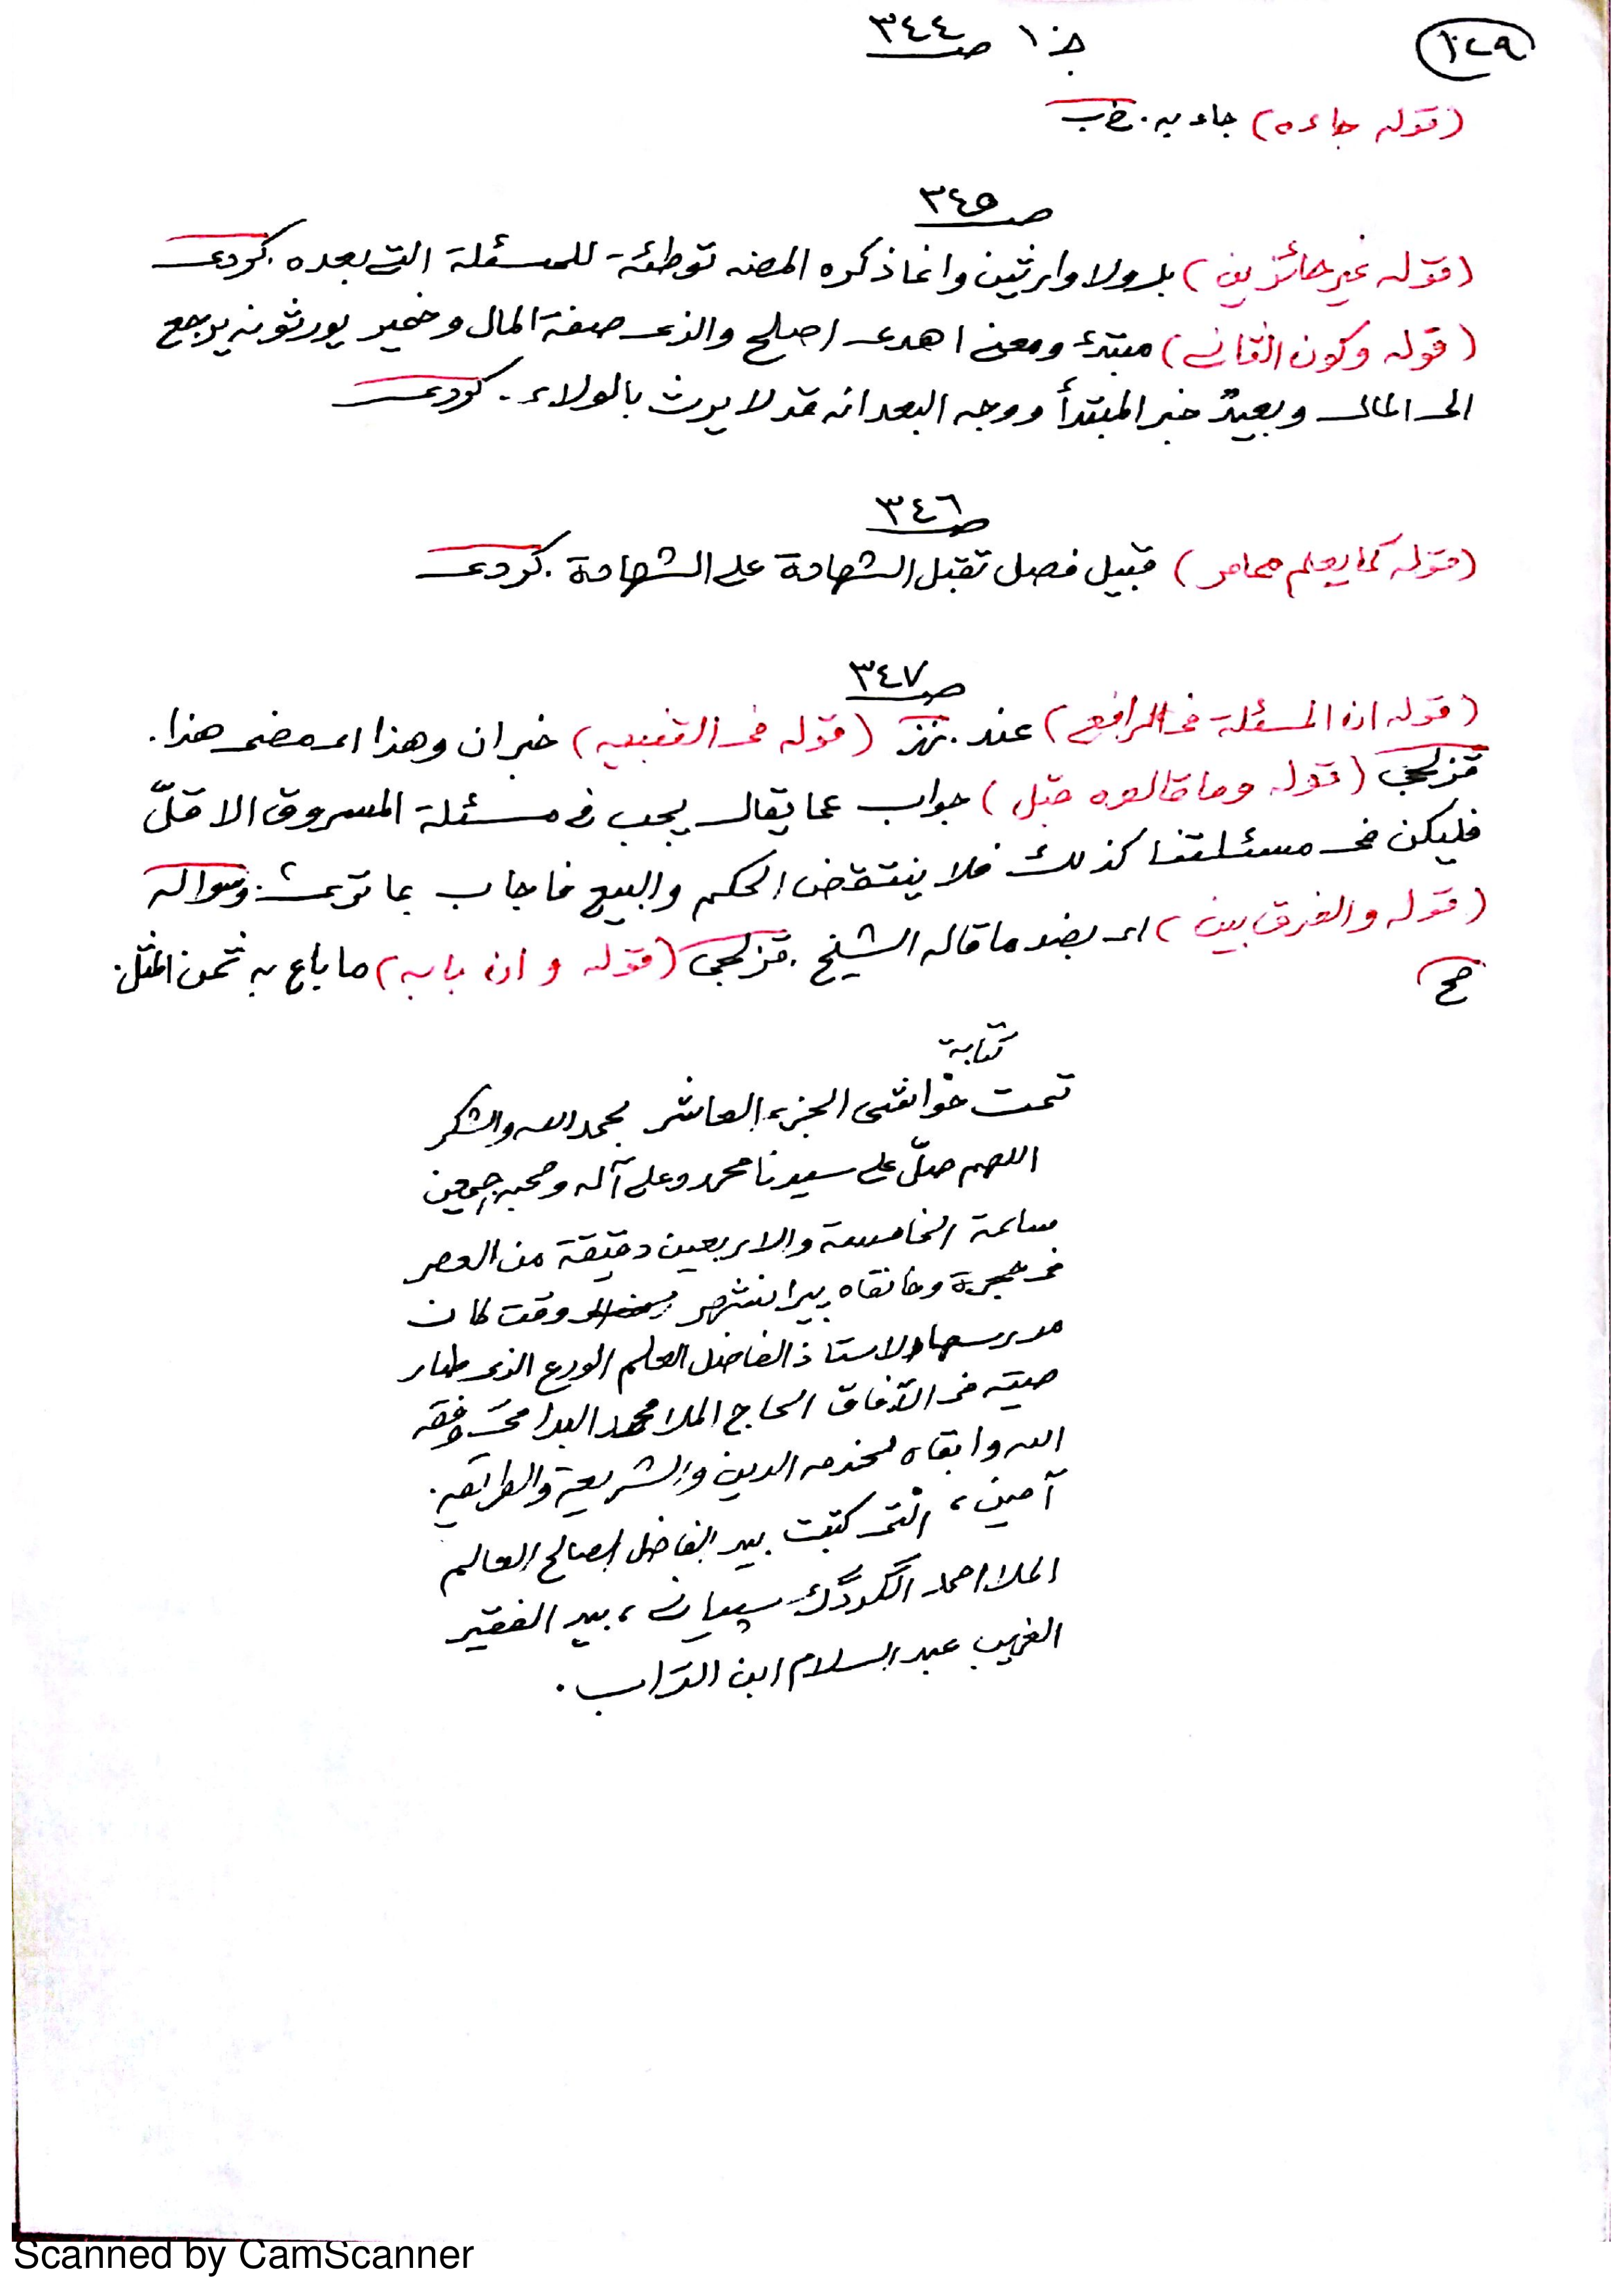 ج١٠ ص ٣٤٤
(قوله جاءه) جاء به.
ص ٣٤٥
(قوله غير حائزين) بل ولا وارثين وانما ذكره المصنه توطئة للمسئلة التى بعده. كردى
(قوله وكون الثانى) مبتدء ومعنى اهدى اصلح والذى صفة المال وضمير يورثونه يرجع
الى المال وبعيدٌ خبر المبتدأ ووجه البعد انه قد لا يرث بالولاء. كردى
ص ٣٤٦
(قوله كما يعلم مما مر) قبيل فصل تقبل الشهادة على الشهادة. كردى
ص ٣٤٧
(قوله ان المسئلة فى الرافعى) عند. (قوله فى التنبيه) خبر ان وهذا اى مضى هذا.
قزلجى (قوله وما قالوه قبل) جواب عما يقال يجب فى مسئلة المسروق الاقلّ
فليكن فى مسئلتنا كذلك فلا ينتقض الحكم والبيع فاجاب بما ترى
(قوله والفرق بين) اى بضد ما قاله الشيخ. قزلجى (قوله وان بابه) ما باع به ثمن المثل.
كتابة
تمت حواشى الجزء العاشر بحمد الله والشكر
اللهم صلّ على سيدنا محمد وعلى آله وصحبه اجمعين
ساعة الخامسة والاربعين دقيقة من العصر
فى حجرة وخانقاه پيرانشهر وقت كان
مدرسها الاستاذ الفاضل العلم الورع الذى طار
صيته فى الآفاق الحاج الملا محمد وفقه
الله وابقاه لخدمه الدين والشريعة والطرائقه.
آمين، التى كتبت بيد الفاضل الصالح العالم
الملا احمد بيد الفقير
الغريب عبد السلام ابن
Scanned by CamScanner